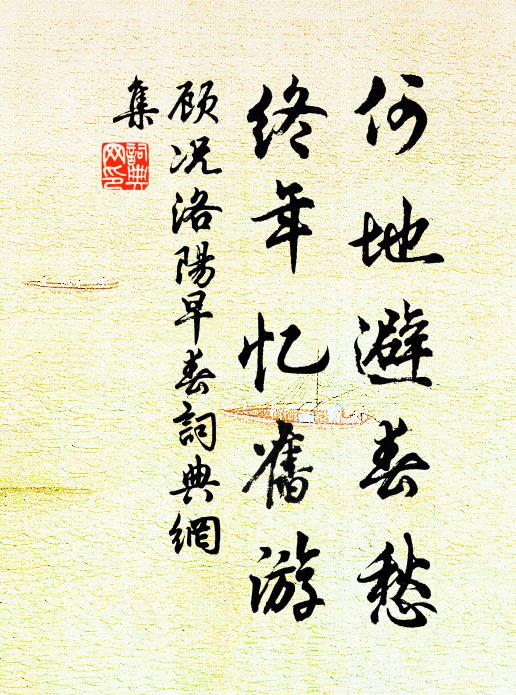 何地避春愁
终年忆舊游
顾况洛陽早春詞典網
集
詞典网印